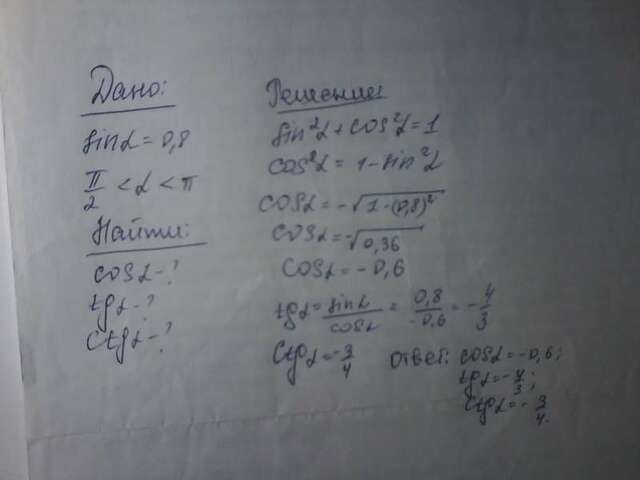 Дано:
sinα = 0,8
π/2 < α < π
Найти:
cosα - ?
tgα - ?
ctgα - ?
Решение:
sin²α + cos²α = 1
cos²α = 1 - sin²α
cosα = -√(1-(0,8)²)
cosα = -√0,36
cosα = -0,6
tgα = sinα/cosα = 0,8/-0,6 = -4/3
ctgα = -3/4
ответ: cosα = -0,6;
tgα = -4/3;
ctgα = -3/4.